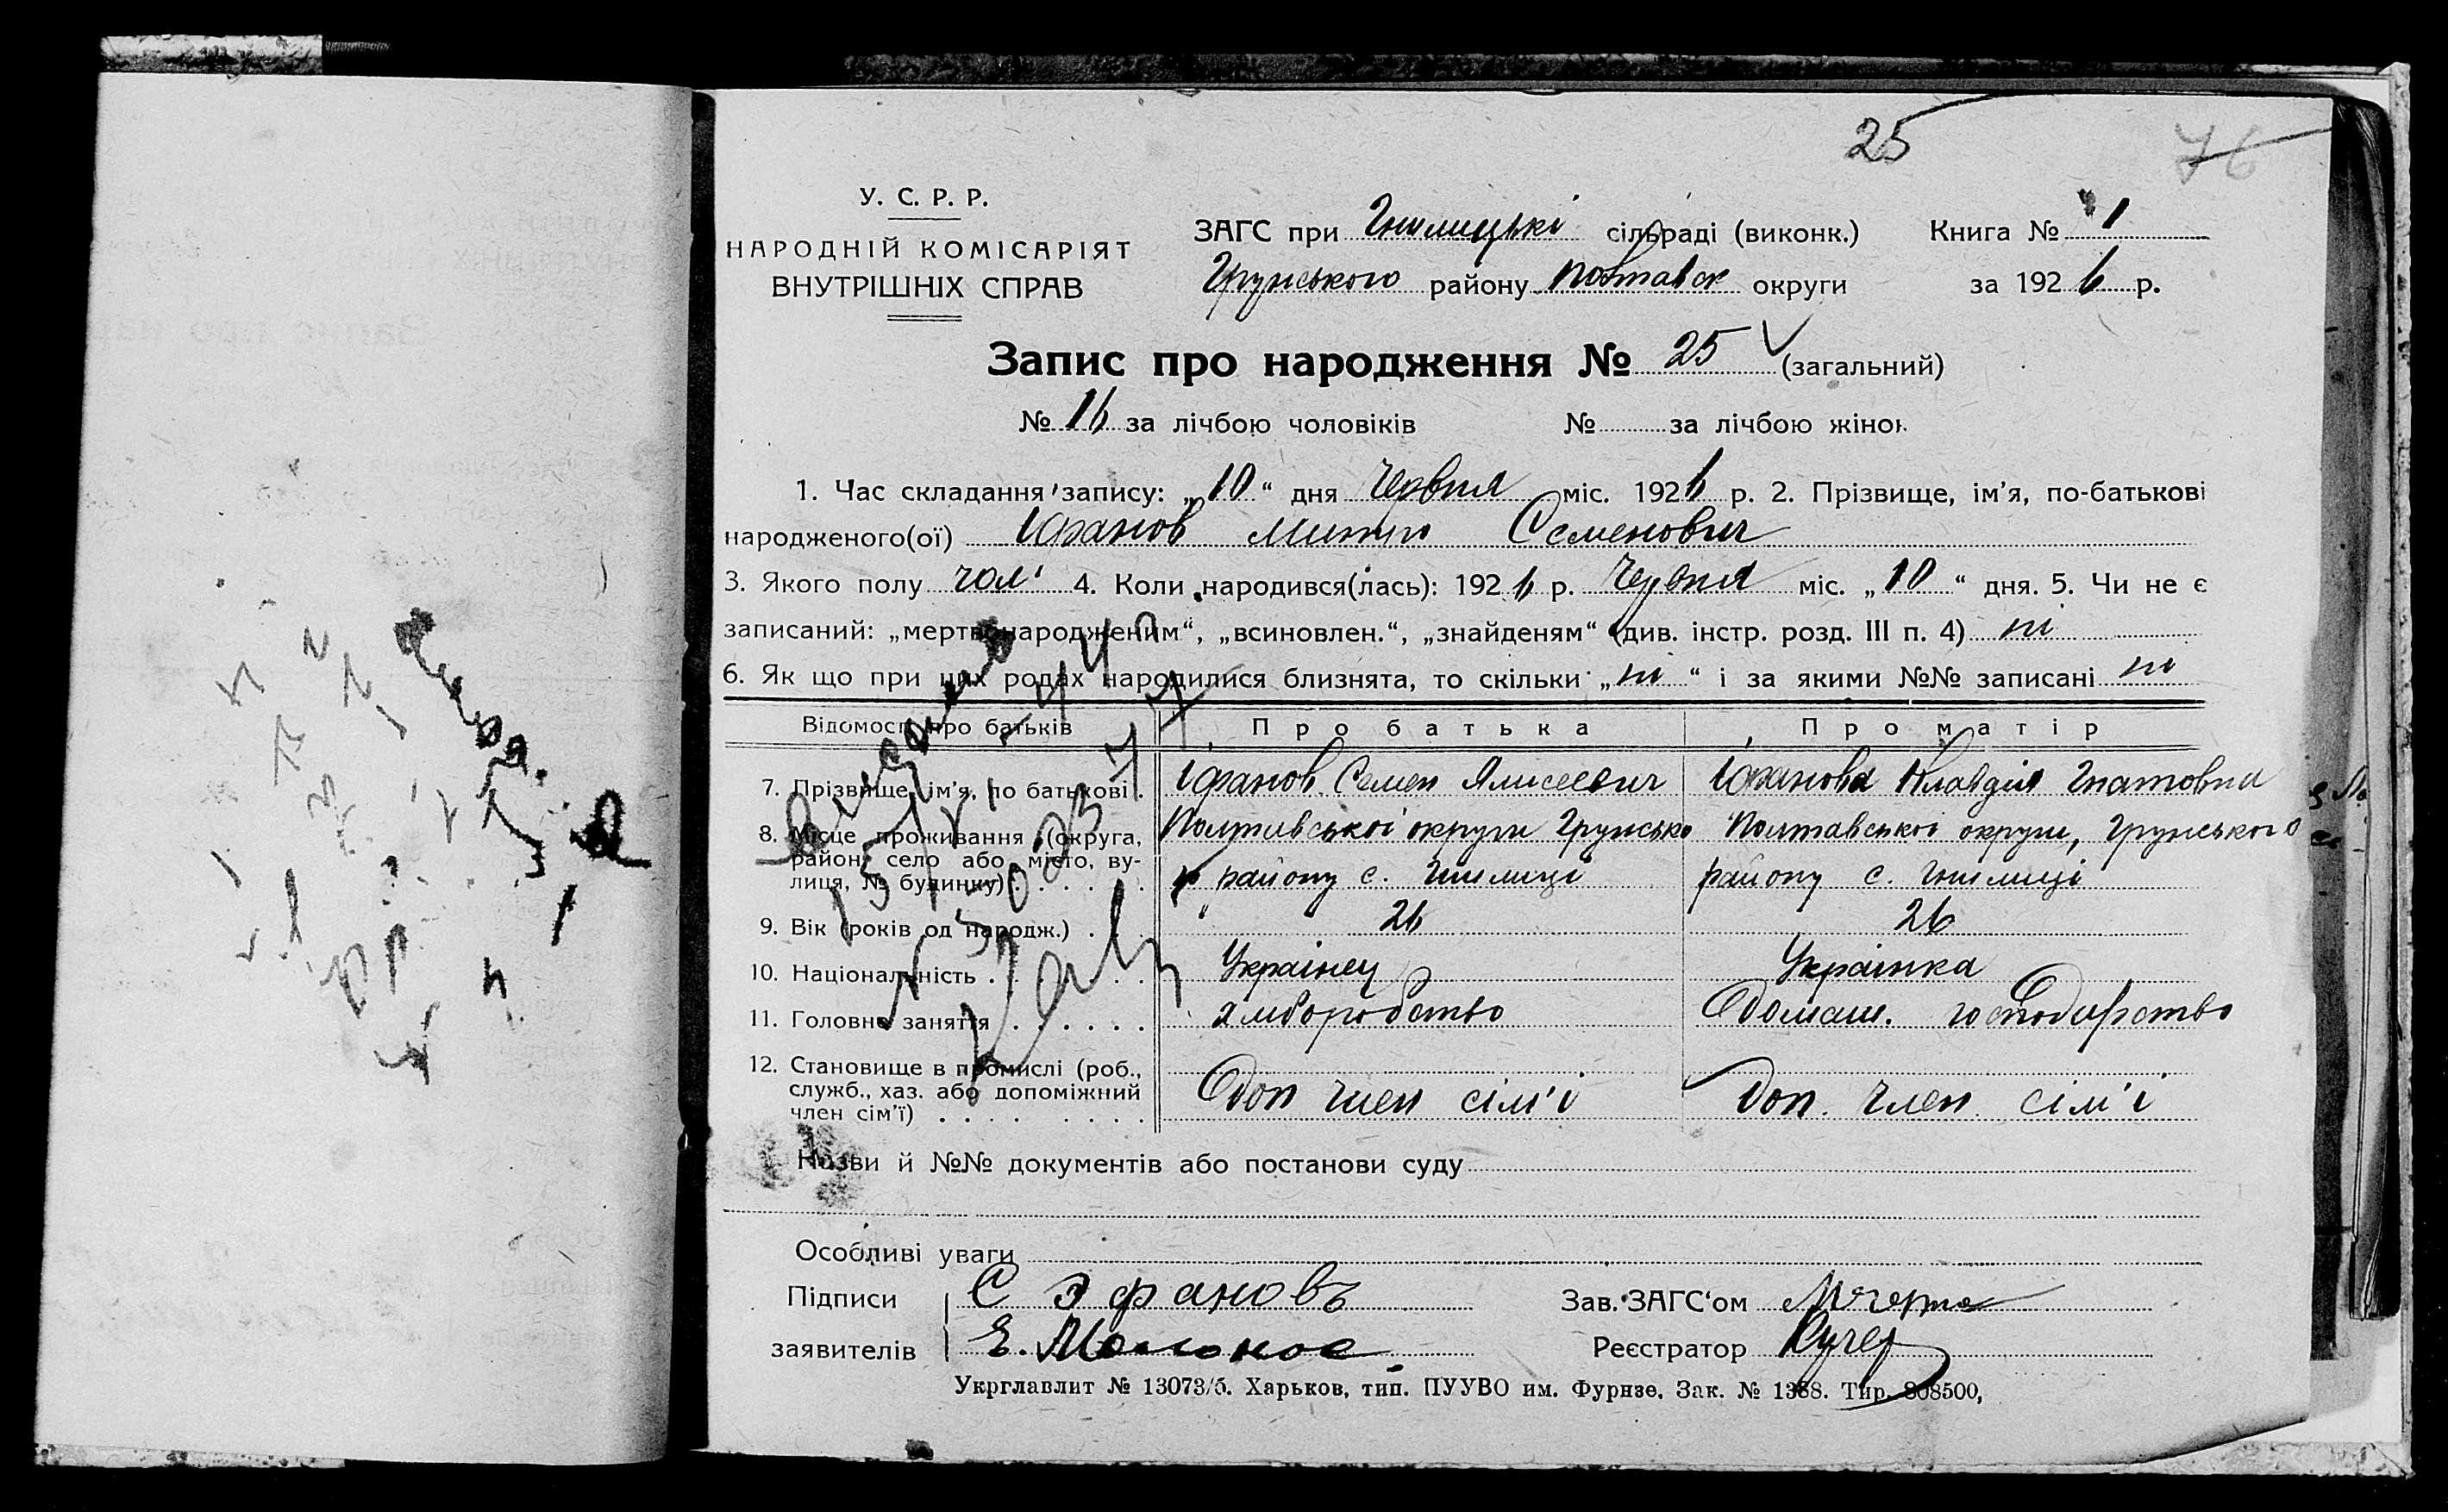 25
76
У. С. Р. Р.
НАРОДНІЙ КОМІСАРІЯТ
ВНУТРІШНІХ СПРАВ
ЗАГС при Гнилицькі сільраді (виконк.) Книга № 1
Грунського району Полтавск округи за 1926 р.
Запис про народження № 25 (загальний)
№ 16 за лічбою чоловіків № за лічбою жінок
1. Час складання запису: „10“ дня червня міс. 1926 р. 2. Прізвище, ім'я, по-батькові
народженого(ої) Юханов Митро Семенович
3. Якого полу чол. 4. Коли народився(лась): 1926 р. червня міс. „10“ дня. 5. Чи не є
записаний: „мертвонародженим“, „всиновлен.“, „знайденям“ (див. інстр. розд. III п. 4) ні
6. Як що при цих родах народилися близнята, то скільки „ні“ і за якими №№ записані ні
Відомости про батьків Про батька Про матір
7. Прізвище, ім'я, по батькові. Семен Клавдія Гнатовна
8. Місце проживання (округа, Полтавської округи Грунсько Полтавської округи, Грунського
район, село або місто, ву-
лиця, № будинку) району с. Гнилиці району с. Гнилиці
9. Вік (років од народж.) 26 26
10. Національність Українец Українка
11. Головне заняття хліборобство домаш. господарство
12. Становище в промислі (роб.,
служб., хаз. або допоміжний Доп член сім'ї Доп. член сім'ї
член сім'ї)
Назви й №№ документів або постанови суду
Особливі уваги
Підписи С Эфановъ Зав. ЗАГС'ом
заявителів Е. Реєстратор Кучер
Укрглавлит № 13073/б. Харьков, тип. ПУУВО им. Фурнзе. Зак. № 1388. Тир. 808500,